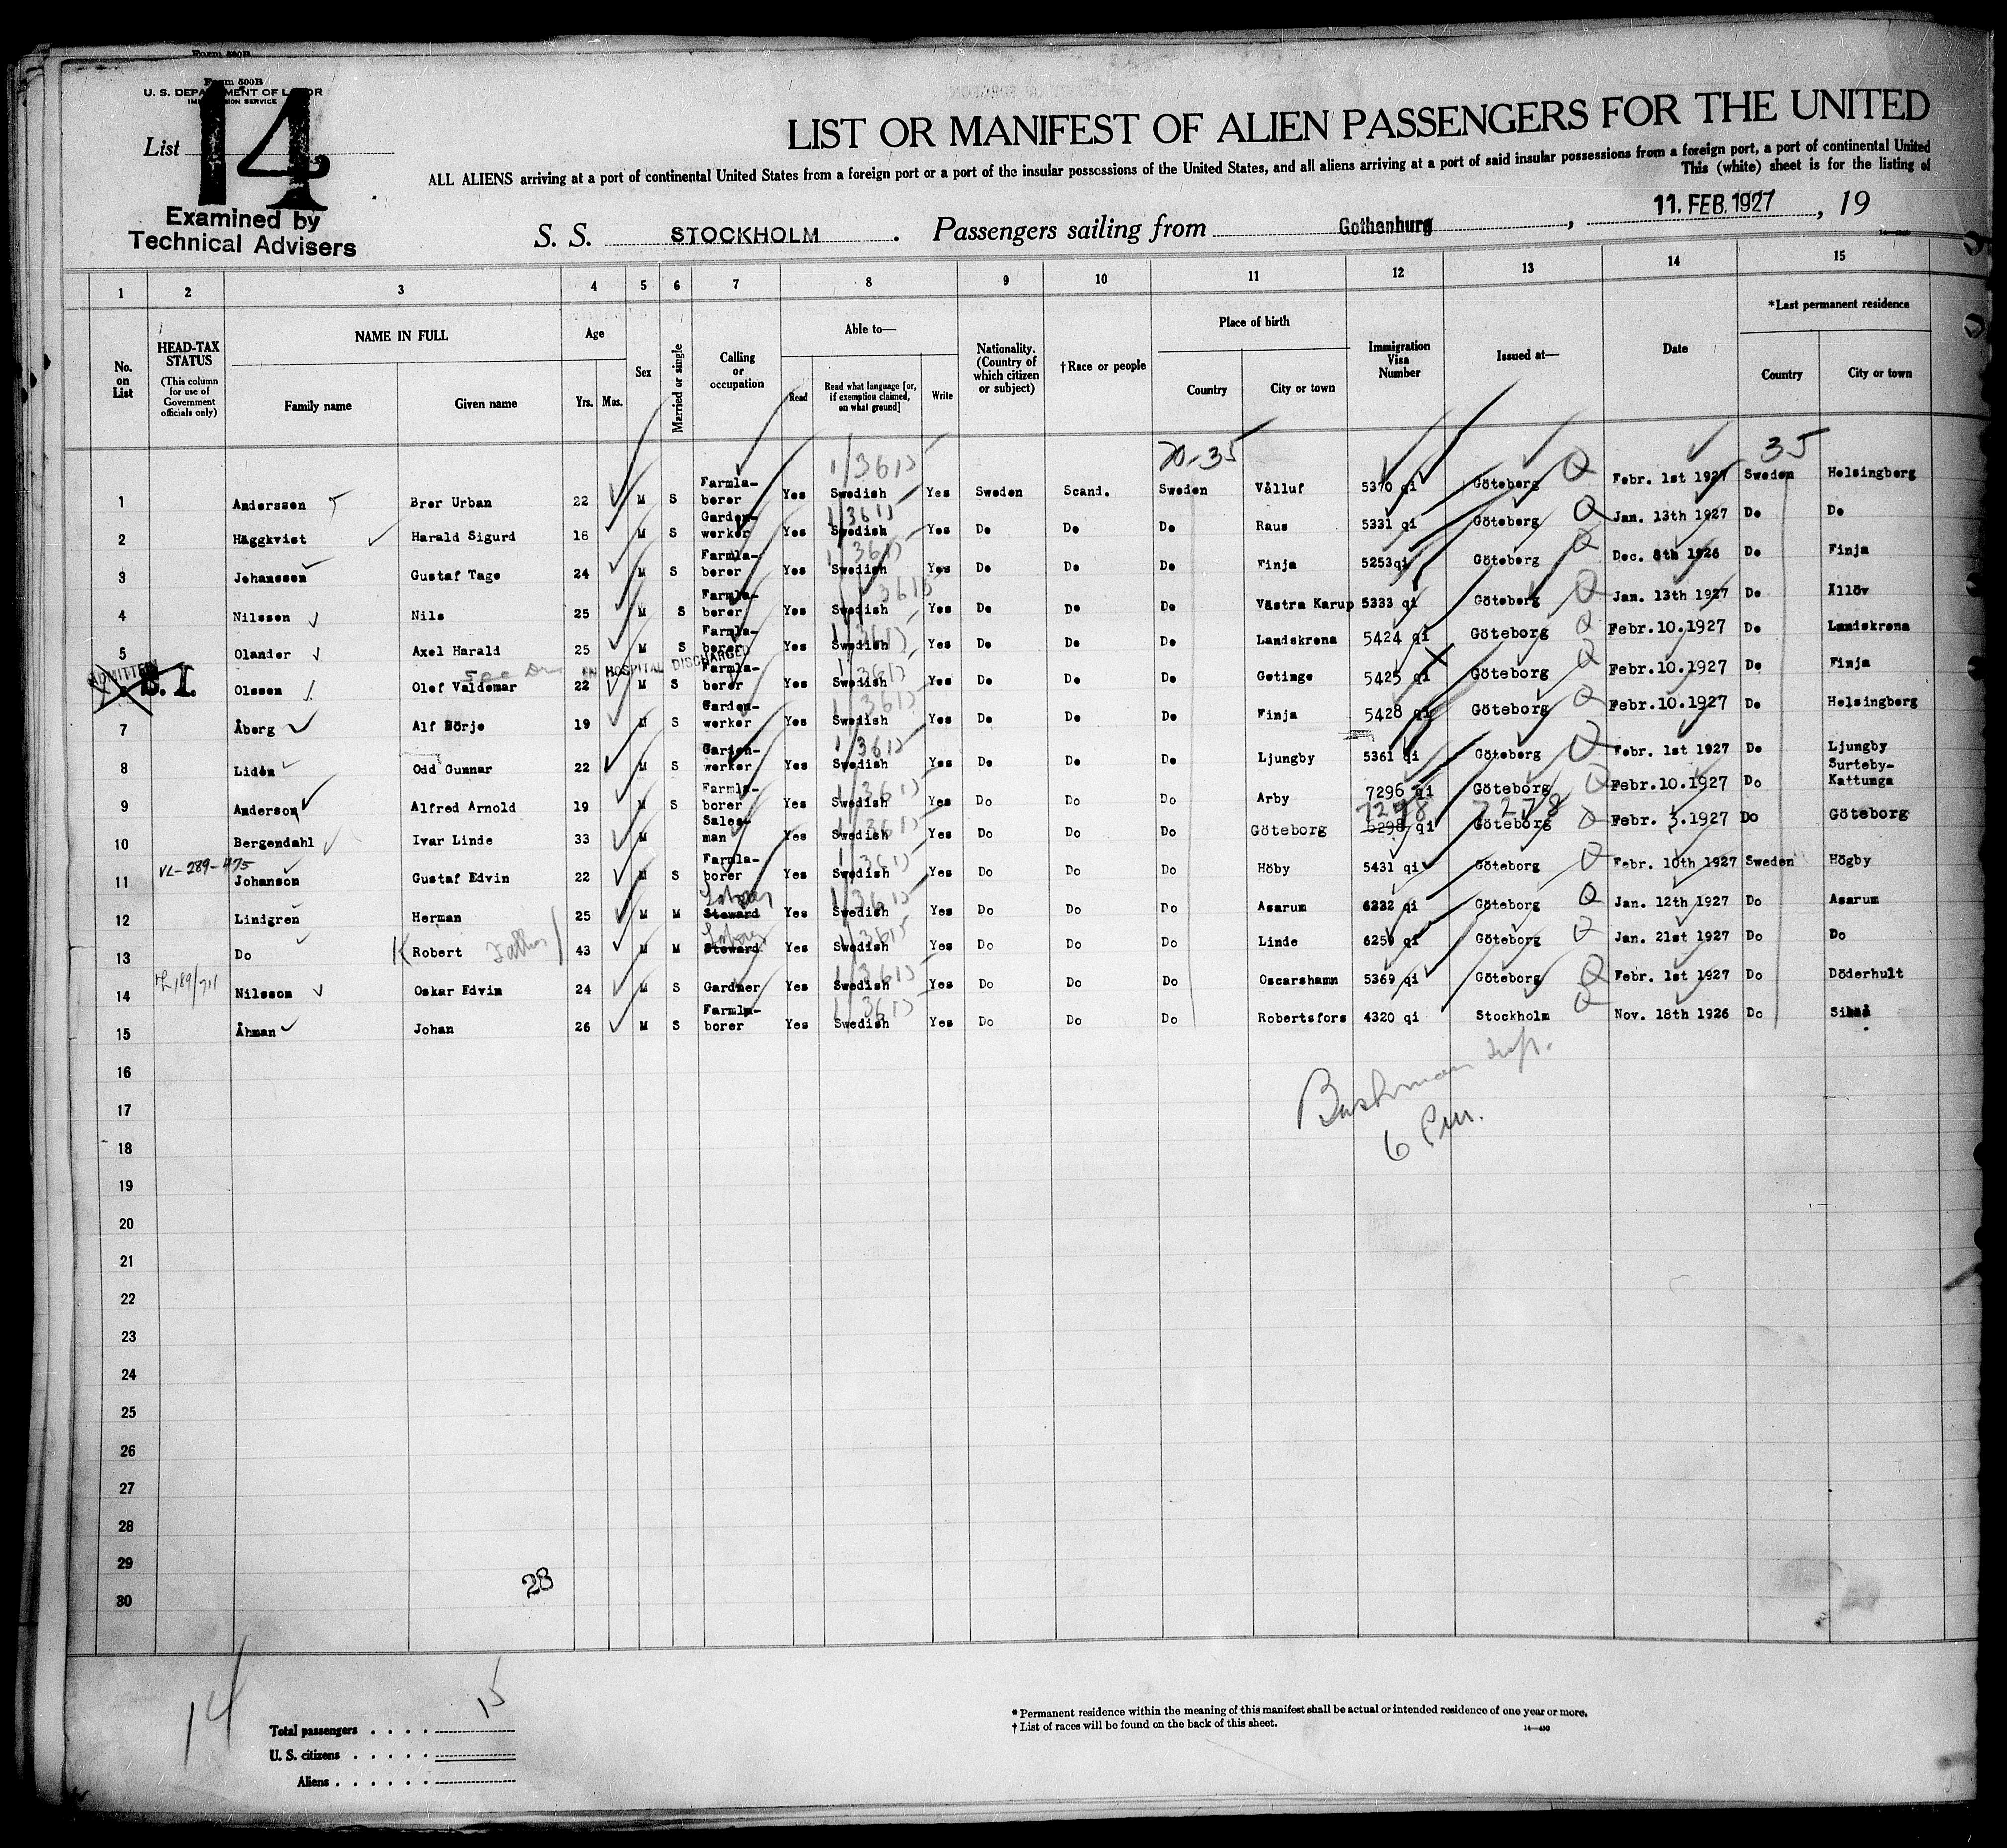 Form 500B
Form 500B
U. S. DEPARTMENT OF LABOR
IMMIGRATION SERVICE
List 14
Examined by
Technical Advisers
LIST OR MANIFEST OF ALIEN PASSENGERS FOR THE UNITED
ALL ALIENS arriving at a port of continental United States from a foreign port or a port of the insular possessions of the United States, and all aliens arriving at a port of said insular possessions from a foreign port, a port of continental United
This (white) sheet is for the listing of
S. S. STOCKHOLM. Passengers sailing from Gothenburg, 11. FEB. 1927, 19
1 2 3 4 5 6 7 8 9 10 11 12 13 14 15
No. on List
HEAD-TAX STATUS
(This column for use of Government officials only)
NAME IN FULL
Family name Given name
Age
Yrs. Mos.
Sex
Married or single
Calling or occupation
Able to—
Read Read what language [or, if exemption claimed, on what ground] Write
Nationality. (Country of which citizen or subject)
†Race or people
Place of birth
Country City or town
Immigration Visa Number
Issued at—
Date
*Last permanent residence
Country City or town
20-35 35
1 Anderssen Brer Urban 22 M S Farmla-borer Yes Swedish Yes Sweden Scand. Sweden Vålluf 5370 qi Göteborg Febr. 1st 1927 Sweden Helsingberg
2 Häggkvist Harald Sigurd 18 M S Garden-werker Yes Swedish Yes De De De Raus 5331 qi Göteborg Jan. 13th 1927 De De
3 Johanssen Gustaf Tage 24 M S Farmla-berer Yes Swedish Yes De De De Finja 5253qi Göteborg Dec. 8th 1926 De Finja
4 Nilssen Nils 25 M S Farmla-berer Yes Swedish Yes De De De Västra Karup 5333 qi Göteborg Jan. 13th 1927 De Ällöv
5 Olander Axel Harald 25 M S Farmla-berer Yes Swedish Yes De De De Landskrena 5424 qi Göteborg Febr.10.1927 De Landskrena
ADMITTED S. I. IN HOSPITAL DISCHARGED
Olssen Olef Valdemar 22 M S Farmla-berer Yes Swedish Yes De De De Getinge 5425 qi Göteborg Febr.10.1927 De Finja
7 Åberg Alf Börje 19 M S Garden-werker Yes Swedish Yes De De De Finja 5428 qi Göteborg Febr.10.1927 De Helsingberg
8 Lidén Odd Gunnar 22 M S Garden-werker Yes Swedish Yes De De De Ljungby 5361 qi Göteborg Febr. 1st 1927 De Ljungby
9 Anderson Alfred Arnold 19 M S Farmla-borer Yes Swedish Yes Do Do Do Arby 7296 qi Göteborg Febr.10.1927 Do Surteby-Kattunga
7278 7278
10 Bergendahl Ivar Linde 33 M Sales-man Yes Swedish Yes Do Do Do Göteborg 6298 qi Göteborg Febr. 3.1927 Do Göteborg
VL-289-475
11 Johanson Gustaf Edvin 22 M S Farmla-borer Yes Swedish Yes Do Do Do Höby 5431 qi Göteborg Febr. 10th 1927 Sweden Högby
12 Lindgren Herman 25 M M Steward Yes Swedish Yes Do Do Do Asarum 6232 qi Göteborg Jan. 12th 1927 Do Asarum
13 Do Robert Father 43 M M Steward Yes Swedish Yes Do Do Do Linde 6259 qi Göteborg Jan. 21st 1927 Do Do
14 Nilsson Oskar Edvin 24 M S Gardner Yes Swedish Yes Do Do Do Oscarshamn 5369 qi Göteborg Febr. 1st 1927 Do Döderhult
15 Åhman Johan 26 M S Farmla-borer Yes Swedish Yes Do Do Do Robertsfors 4320 qi Stockholm Nov. 18th 1926 Do
16
17
18
19
20
21
22
23
24
25
26
27
28
29
30
28
14
15
Total passengers
U. S. citizens
Aliens
* Permanent residence within the meaning of this manifest shall be actual or intended residence of one year or more.
† List of races will be found on the back of this sheet.
14—430